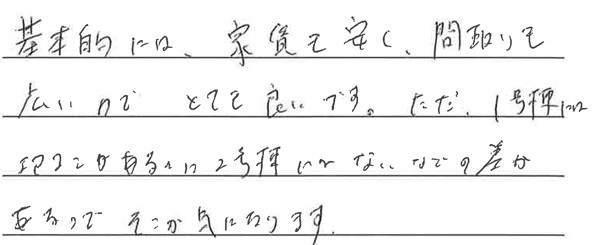 基本的には、家賃も安く、間取りも
広いので とても良いです。ただ、1号棟には
があるのに2号棟にはないなどの差が
あるのでそこが気になります。